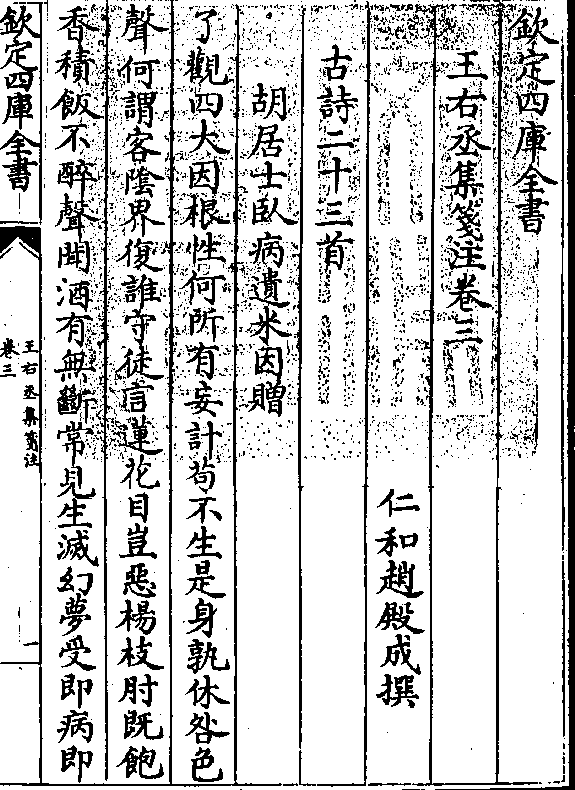 欽定四庫全書
王右丞集箋注卷三
仁和趙殿成撰
古詩二十三首
胡居士臥病遺米因贈
了觀四大因根性何所有妄計苟不生是身孰休咎色
聲何謂客陰界復誰守徒言蓮花目豈惡楊枝肘既飽
香積飯不醉聲聞酒有無斷常見生滅幻夢受即病即
欽定四庫全書
王右丞集箋注
卷三
一